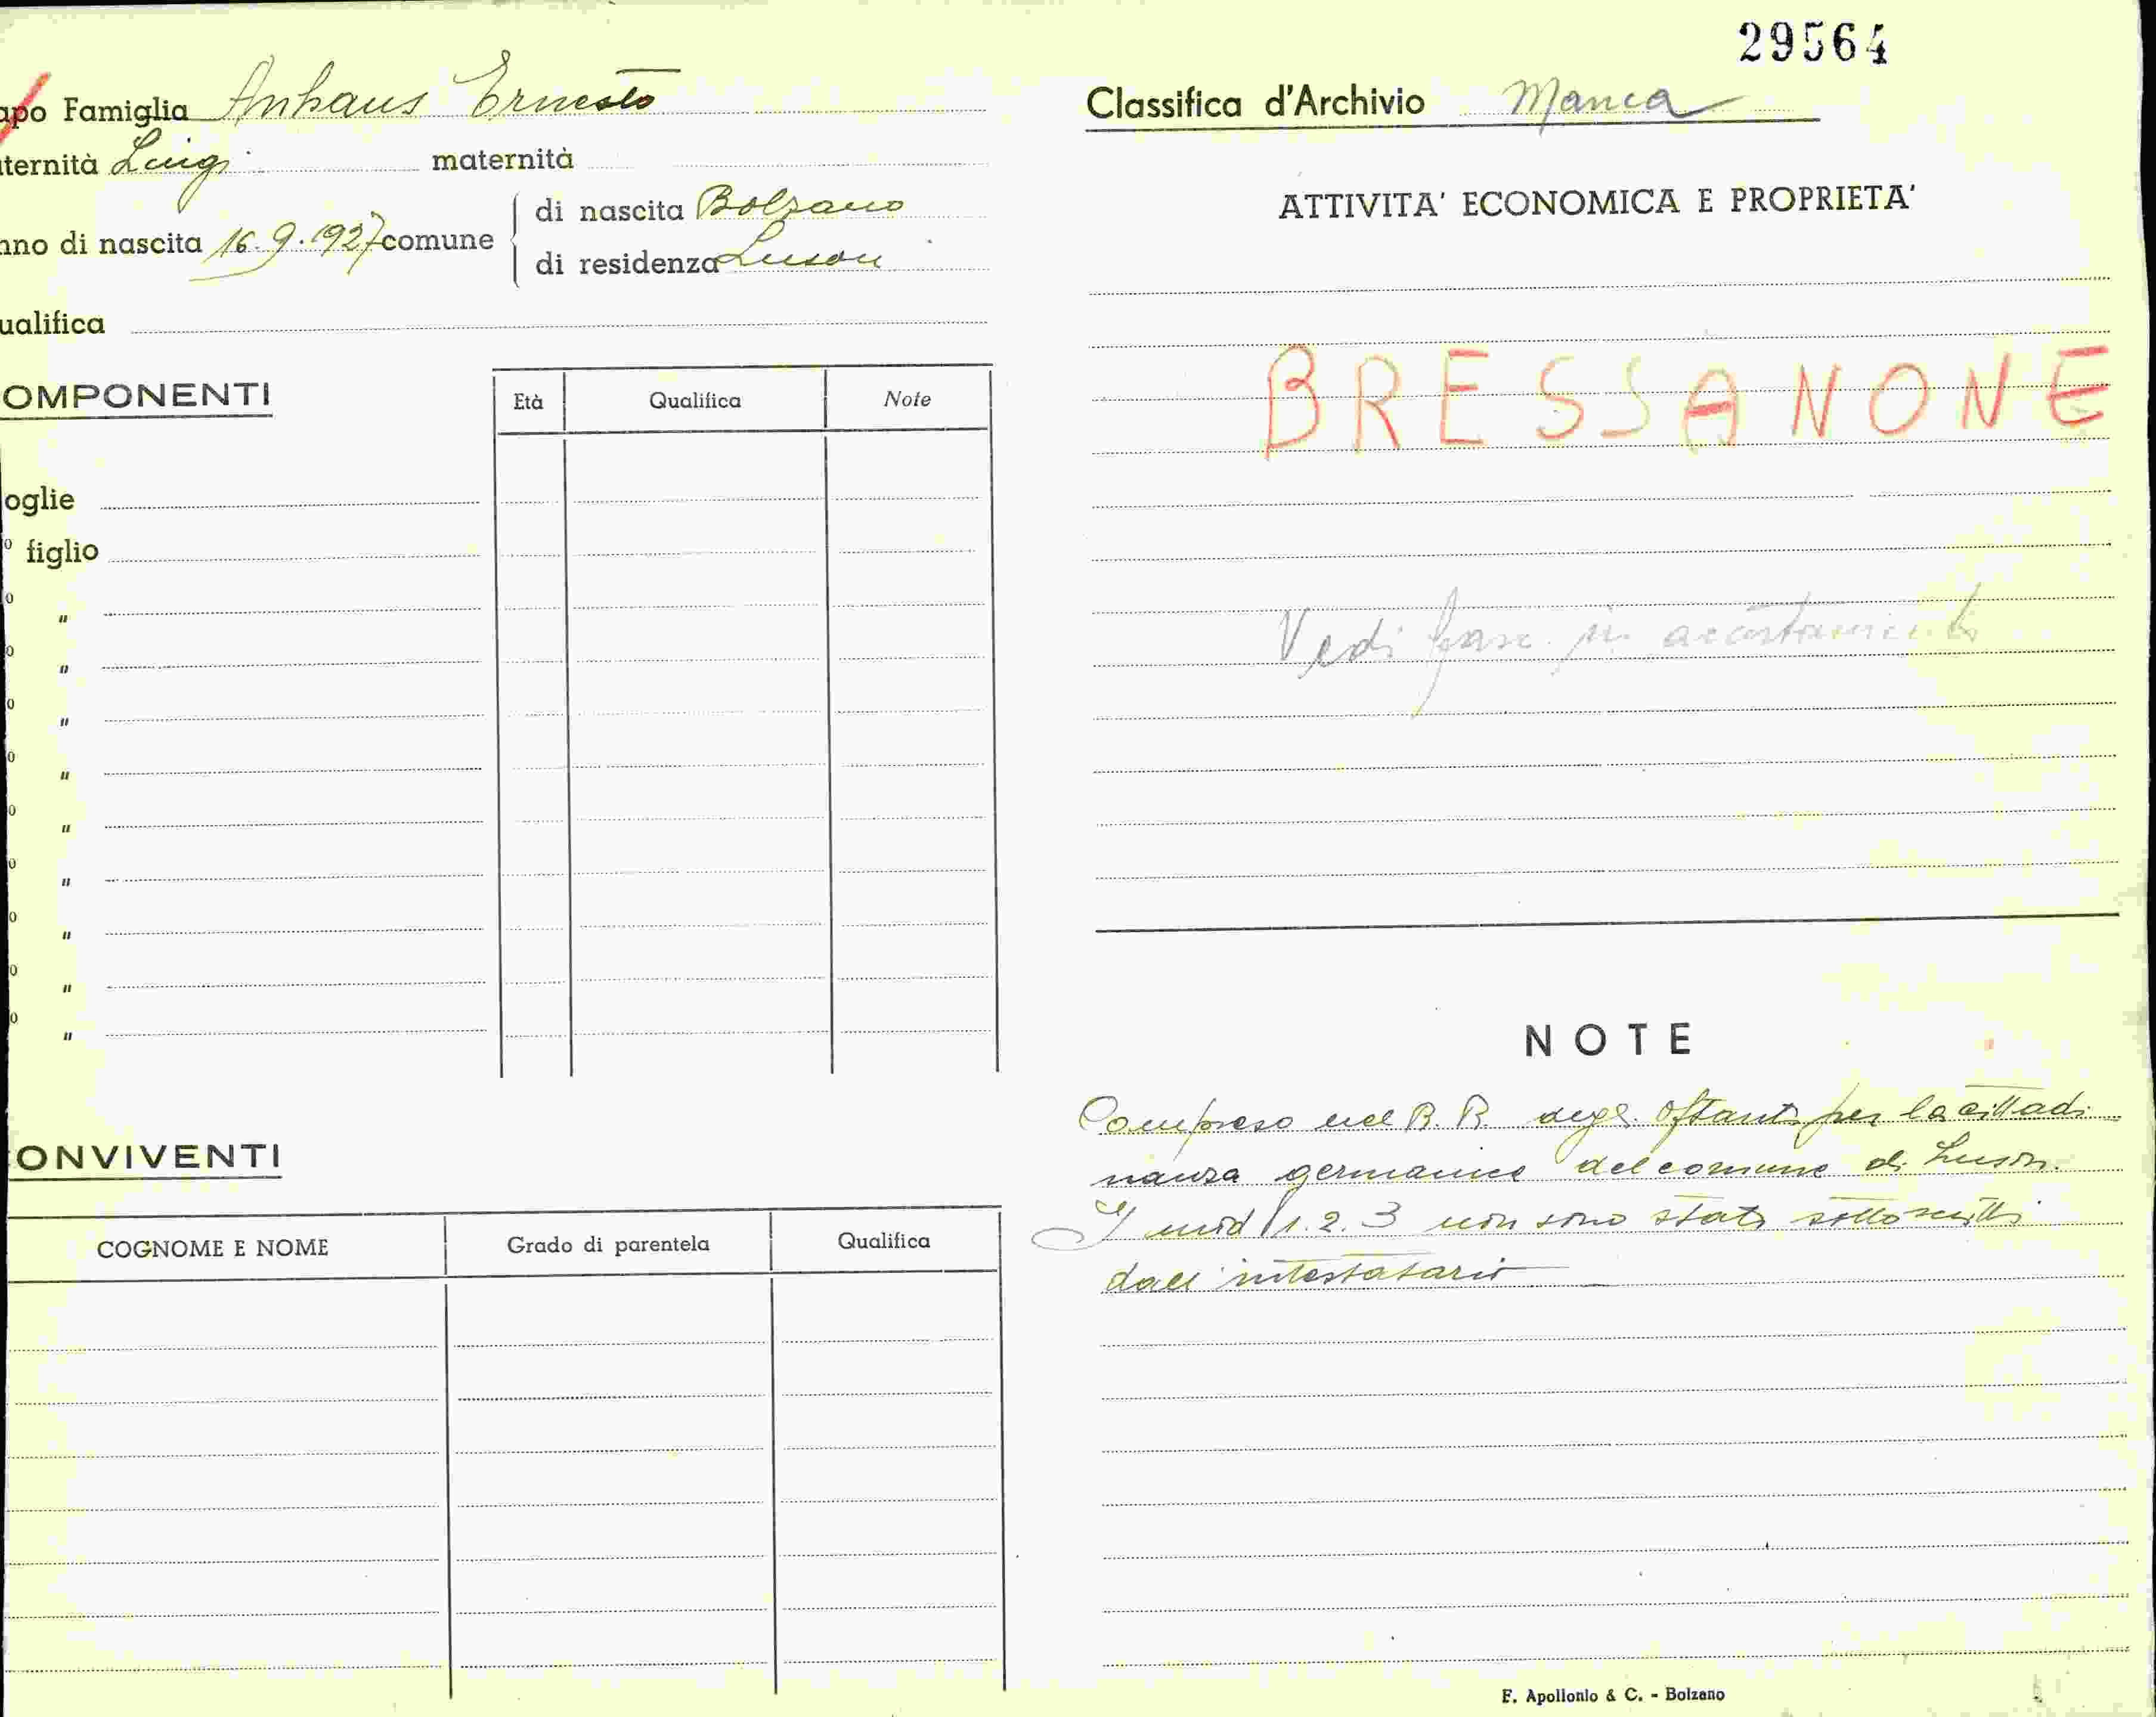 29564
apo Famiglia Anhaus Ernesto
ternità Luigi maternità
nno di nascita 16.9.1927 comune
di nascita Bolzano
di residenza Luson
ualifica
OMPONENTI
Età Qualifica Note
oglie
o figlio
o "
o "
o "
o "
o "
o "
o "
o "
o "
ONVIVENTI
COGNOME E NOME Grado di parentela Qualifica
Classifica d'Archivio Manca
ATTIVITA' ECONOMICA E PROPRIETA'
BRESSANONE
Vedi fasc. in accertamenti
NOTE
Compreso nel R. R. degli optanti per la cittadi
nanza germanica del comune di Luson.
I mod 1. 2. 3 non sono stati sottoscritti
dall'intestatario
F. Apollonio & C. - Bolzano